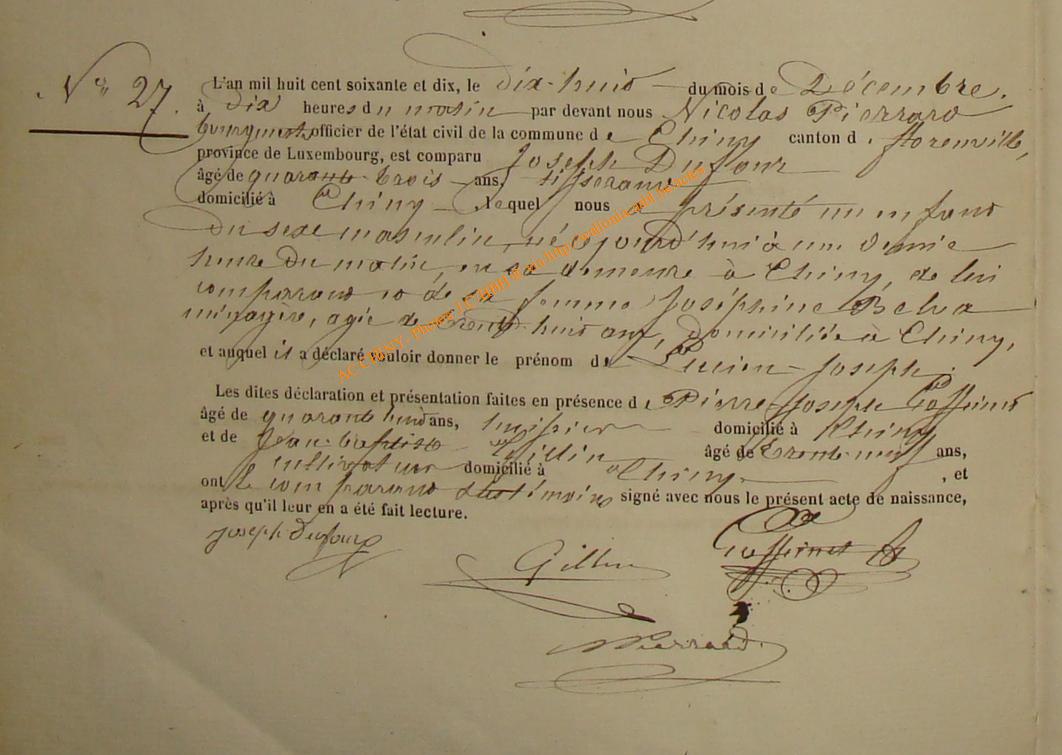 N° 27.
L'an mil huit cent soixante et dix, le dix-huit du mois de Décembre,
à dix heures du matin par devant nous Nicolas Pierrard
bourgmestre officier de l'état civil de la commune de Chiny canton d. florenville,
province de Luxembourg, est comparu Joseph Dufour
âgé de quarante-trois ans, tisserand
domicilié à Chiny, lequel nous a présenté un enfant
du sexe masculin, né cejourd'hui à une demie
heure du matin, en sa demeure à Chiny, de lui
comparant et de sa femme Joséphine Belva
ménagère, agée de trente-huit ans, domiciliée à Chiny,
et auquel il a déclaré vouloir donner le prénom de Lucien-Joseph.
Les dites déclaration et présentation faites en présence de Pierre-Joseph Goffinet
âgé de quarante huit ans, huissier domicilié à Chiny
et de Jean-baptiste Gillin âgé de trente-neuf ans,
cultivateur domicilié à Chiny, et
ont le comparant et les témoins signé avec nous le présent acte de naissance,
après qu'il leur en a été fait lecture.
Joseph Dufour
Gillin
Goffinet
Pierrard.